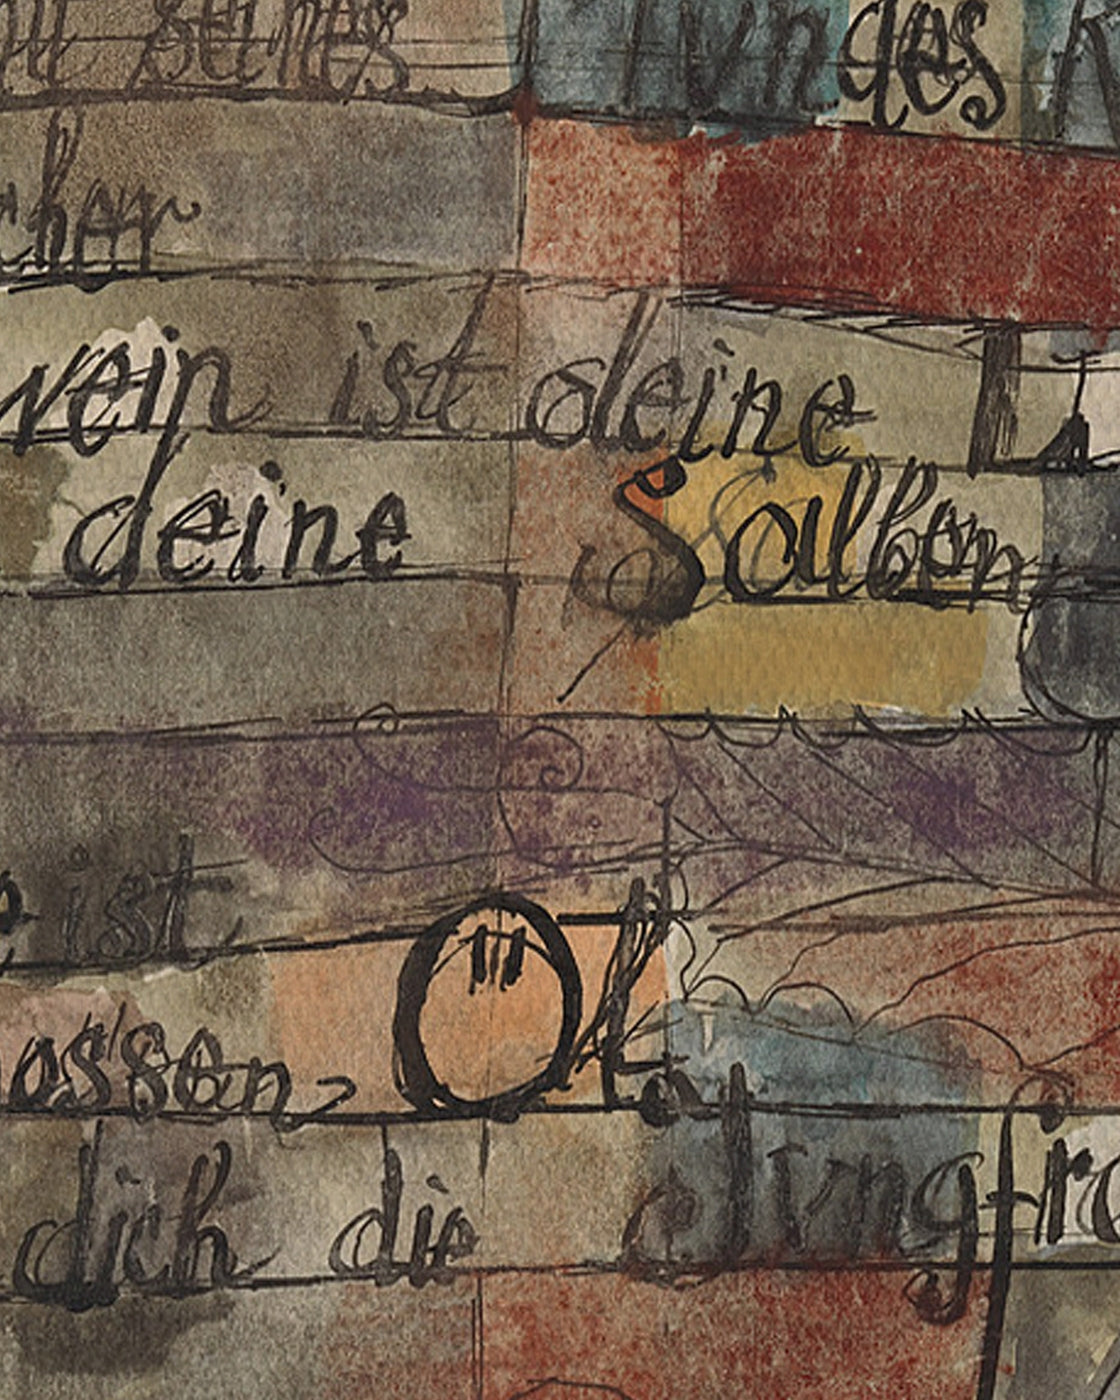 it seines Mundes K
cher
wein ist deine Li
deine Salben
e ist
ossen, Öl,
dich die Jungfra